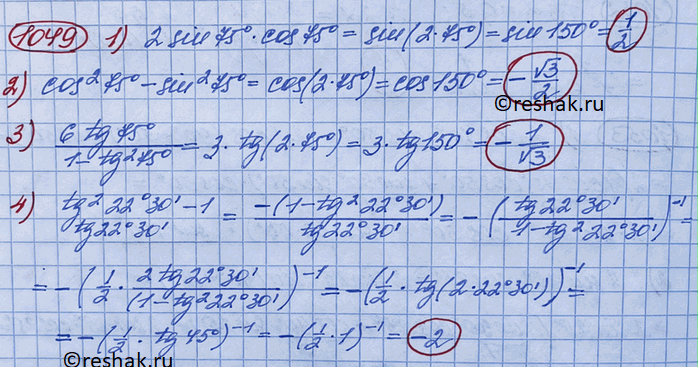 1049 1) 2 sin 75° · cos 75° = sin(2·75°) = sin 150° = 1/2
2) cos² 75° - sin² 75° = cos(2·75°) = cos 150° = -√3/2
©reshak.ru
3) 6 tg 75° / 1 - tg² 75° = 3 · tg(2·75°) = 3 · tg 150° = -1/√3
4) tg² 22°30' - 1 / tg 22°30' = -(1 - tg² 22°30') / tg 22°30' = -(tg 22°30' / 1 - tg² 22°30')⁻¹ =
= -(1/2 · 2 tg 22°30' / (1 - tg² 22°30'))⁻¹ = -(1/2 · tg(2·22°30'))⁻¹ =
= -(1/2 · tg 45°)⁻¹ = -(1/2 · 1)⁻¹ = -2
©reshak.ru